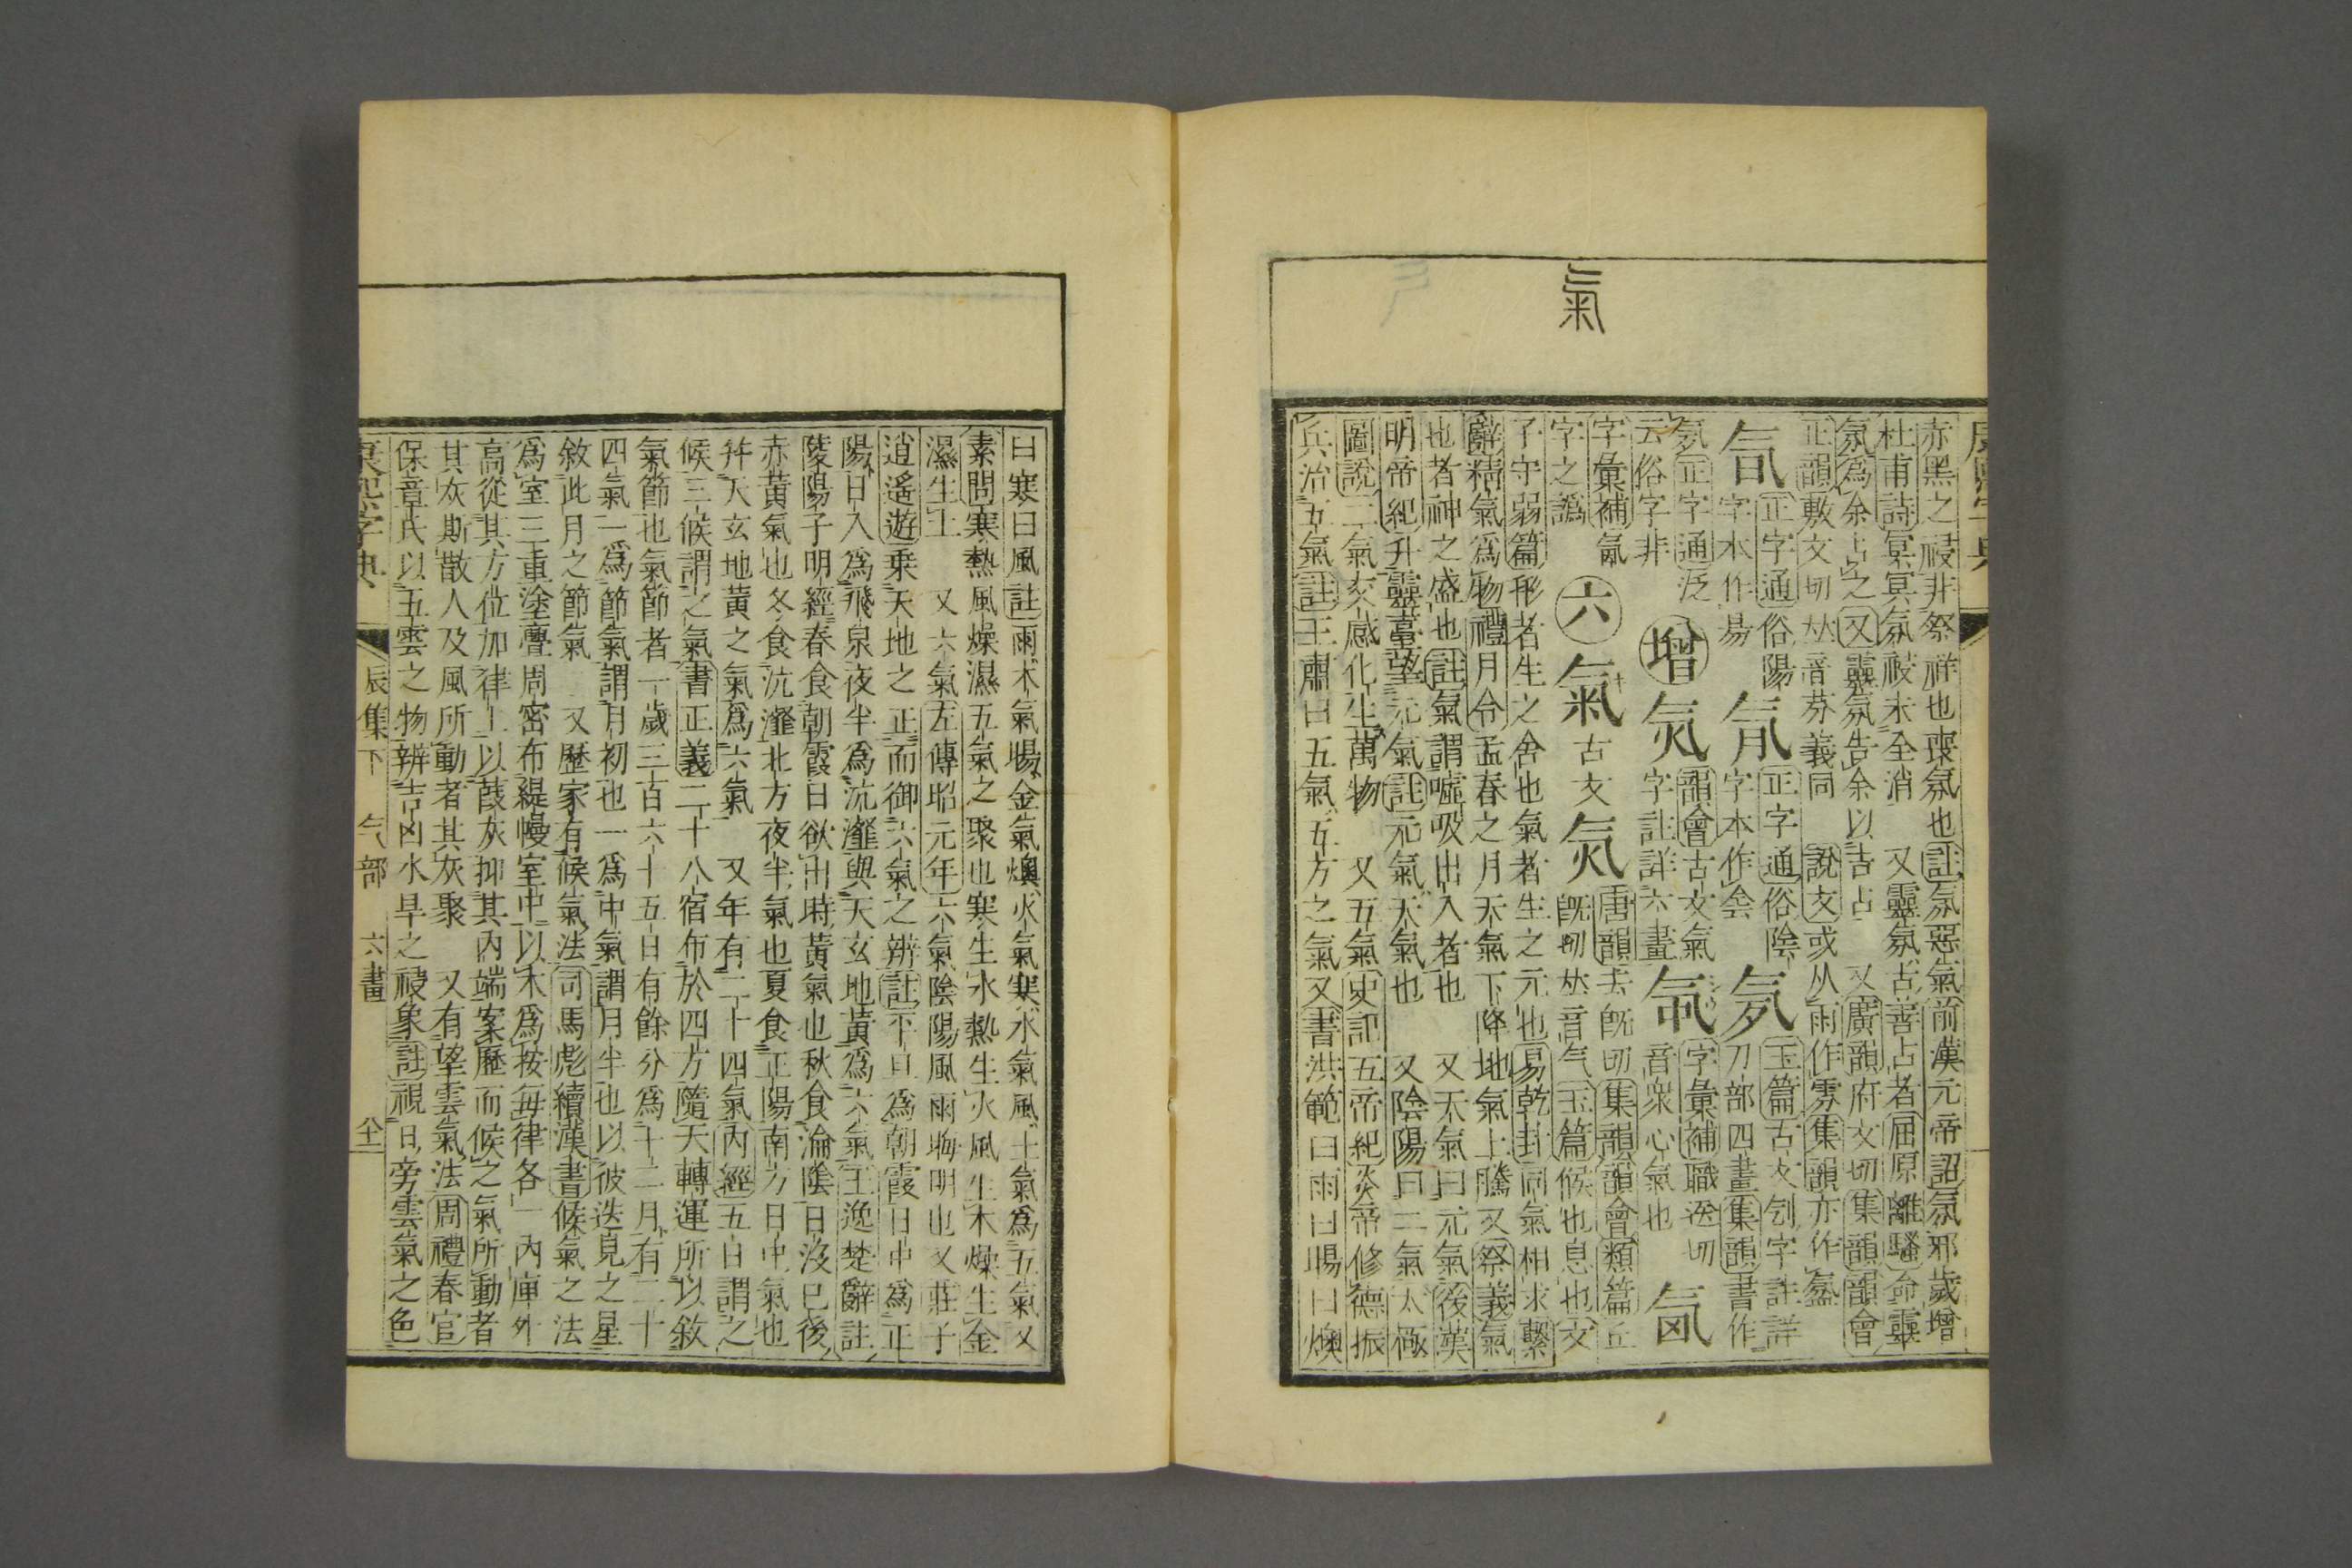 氣
康熙字典
赤黑之祲非祭祥也喪氛也註氛惡氣前漢元帝詔氛邪歲增
杜甫詩冥冥氛祲未全消 又靈氛古善占者屈原離騷命靈
氛爲余占之又靈氛告余以吉占 又廣韻府文切集韻韻會
正韻敷文切𠀤音芬義同 說文或从雨作雰集韻亦作
氜 正字通俗陽字本作昜
正字通俗陰字本作侌
玉篇古文刎字註詳刀部四畫集韻書作
正字通泛云俗字非
增
韻會古文氣字註詳六畫
字彙補職深切音衆心氣也
字彙補氤字之譌
六
氣 古文 唐韻去旣切集韻韻會類篇丘旣切𠀤音气玉篇候也息也文
子守弱篇形者生之舍也氣者生之元也易乾卦同氣相求繫
辭精氣爲物禮月令孟春之月天氣下降地氣上騰又祭義氣
也者神之盛也註氣謂噓吸出入者也 又天氣曰元氣後漢
明帝紀升靈臺望元氣註元氣天氣也 又陰陽曰二氣太極
圖說二氣交感化生萬物 又五氣史記五帝紀炎帝修德振
兵治五氣註王肅曰五氣五方之氣又書洪範曰雨曰暘曰燠
曰寒曰風註雨木氣暘金氣燠火氣寒水氣風土氣爲五氣又
素問寒熱風燥濕五氣之聚也寒生水熱生火風生木燥生金
濕生土 又六氣左傳昭元年六氣陰陽風雨晦明也又莊子
逍遙遊乗天地之正而御六氣之辨註平旦爲朝霞日中爲正
陽日入爲飛泉夜半爲沆瀣與天玄地黃爲六氣王逸楚辭註
陵陽子明經春食朝霞日欲出時黃氣也秋食淪陰日沒已後
赤黃氣也冬食沆瀣北方夜半氣也夏食正陽南方日中氣也
幷天玄地黃之氣爲六氣 又年有二十四氣內經五日謂之
候三候謂之氣書正義二十八宿布於四方隨天轉運所以敘
氣節也氣節者一歲三百六十五日有餘分爲十二月有二十
四氣一爲節氣謂月初也一爲中氣謂月半也以彼迭見之星
敘此月之節氣 又歷家有候氣法司馬彪續漢書候氣之法
爲室三重塗亹周密布緹幔室中以木爲按每律各一內庳外
高從其方位加律上以葭灰抑其內端案歷而候之氣所動者
其灰斯散人及風所動者其灰聚 又有望雲氣法周禮春官
保章氏以五雲之物辨吉凶水旱之祲象註視日旁雲氣之色
康熙字典 辰集下 气部 六畫